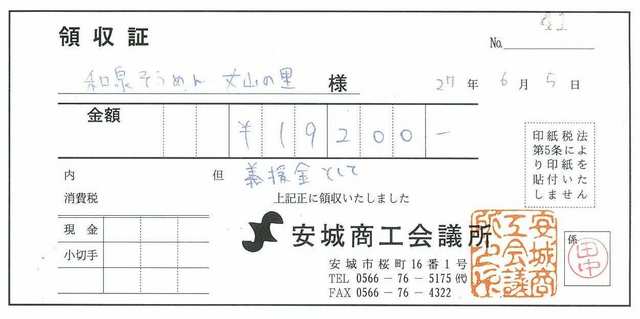 領収証
No. 22
和泉そうめん 丈山の里 様 27年 6月 5日
金額 ¥19200-
内 但 義援金として
消費税 上記正に領収いたしました
印紙税法
第5条によ
り印紙を
貼付いた
しません
現金
小切手
安城商工会議所
安城市桜町16番1号
TEL 0566-76-5175㈹
FAX 0566-76-4322
安城商
工会議
所之印
係
田中